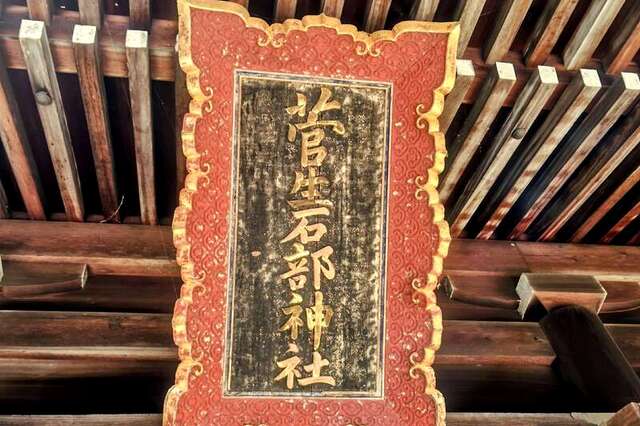 菅生石部神社